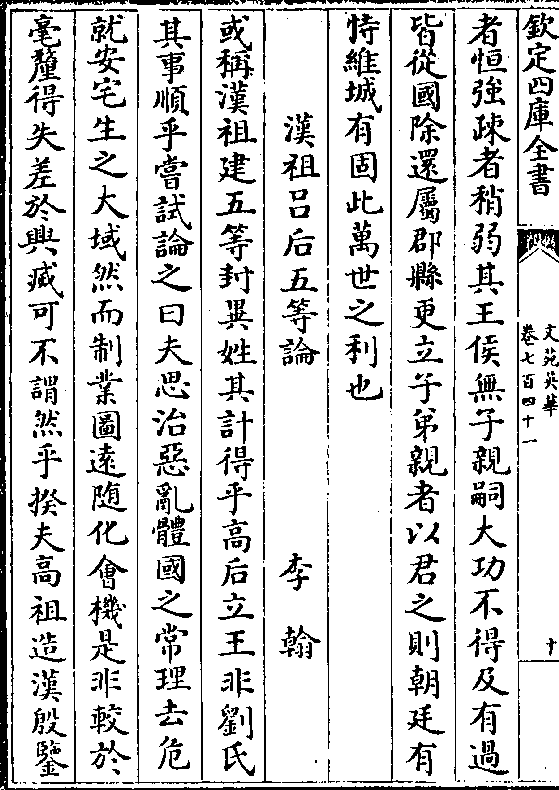 欽定四庫全書
文苑英華
卷七百四十一
十
者恒強疎者稍弱其王侯無子親嗣大功不得及有過
皆從國除還屬郡縣更立子弟親者以君之則朝廷有
恃維城有固此萬世之利也
漢祖呂后五等論 李翰
或稱漢祖建五等封異姓其計得乎高后立王非劉氏
其事順乎嘗試論之曰夫思治惡亂體國之常理去危
就安宅生之大域然而制業圖遠随化會機是非較於
毫釐得失差於興臧可不謂然乎揆夫高祖造漢殷鑒